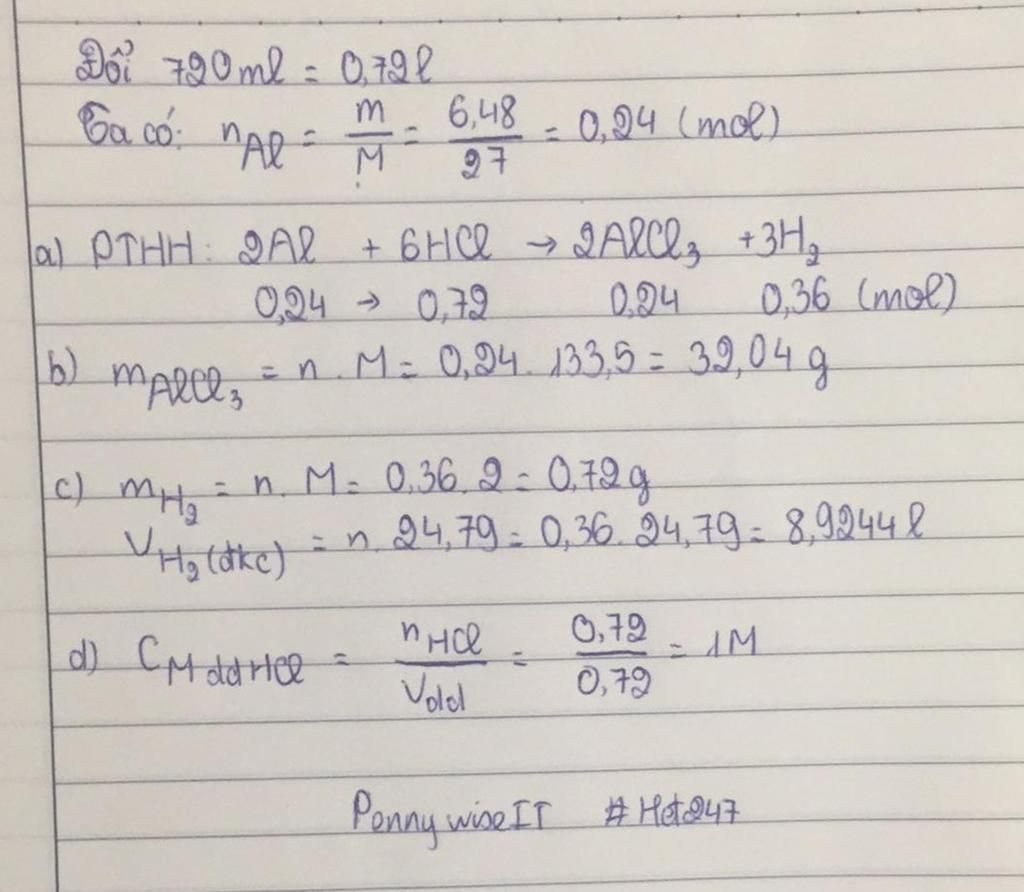 Đổi 720ml = 0,72l
Ta có: nAl = m/M = 6,48/27 = 0,24 (mol)
a) PTHH: 2Al + 6HCl → 2AlCl₃ + 3H₂
0,24 → 0,72 0,24 0,36 (mol)
b) mAlCl₃ = n . M = 0,24 . 133,5 = 32,04 g
c) mH₂ = n . M = 0,36 . 2 = 0,72g
VH₂(đkc) = n . 24,79 = 0,36 . 24,79 = 8,9244 l
d) CM dd HCl = nHCl/Vdd = 0,72/0,72 = 1M
PennywiseIT #Hst247